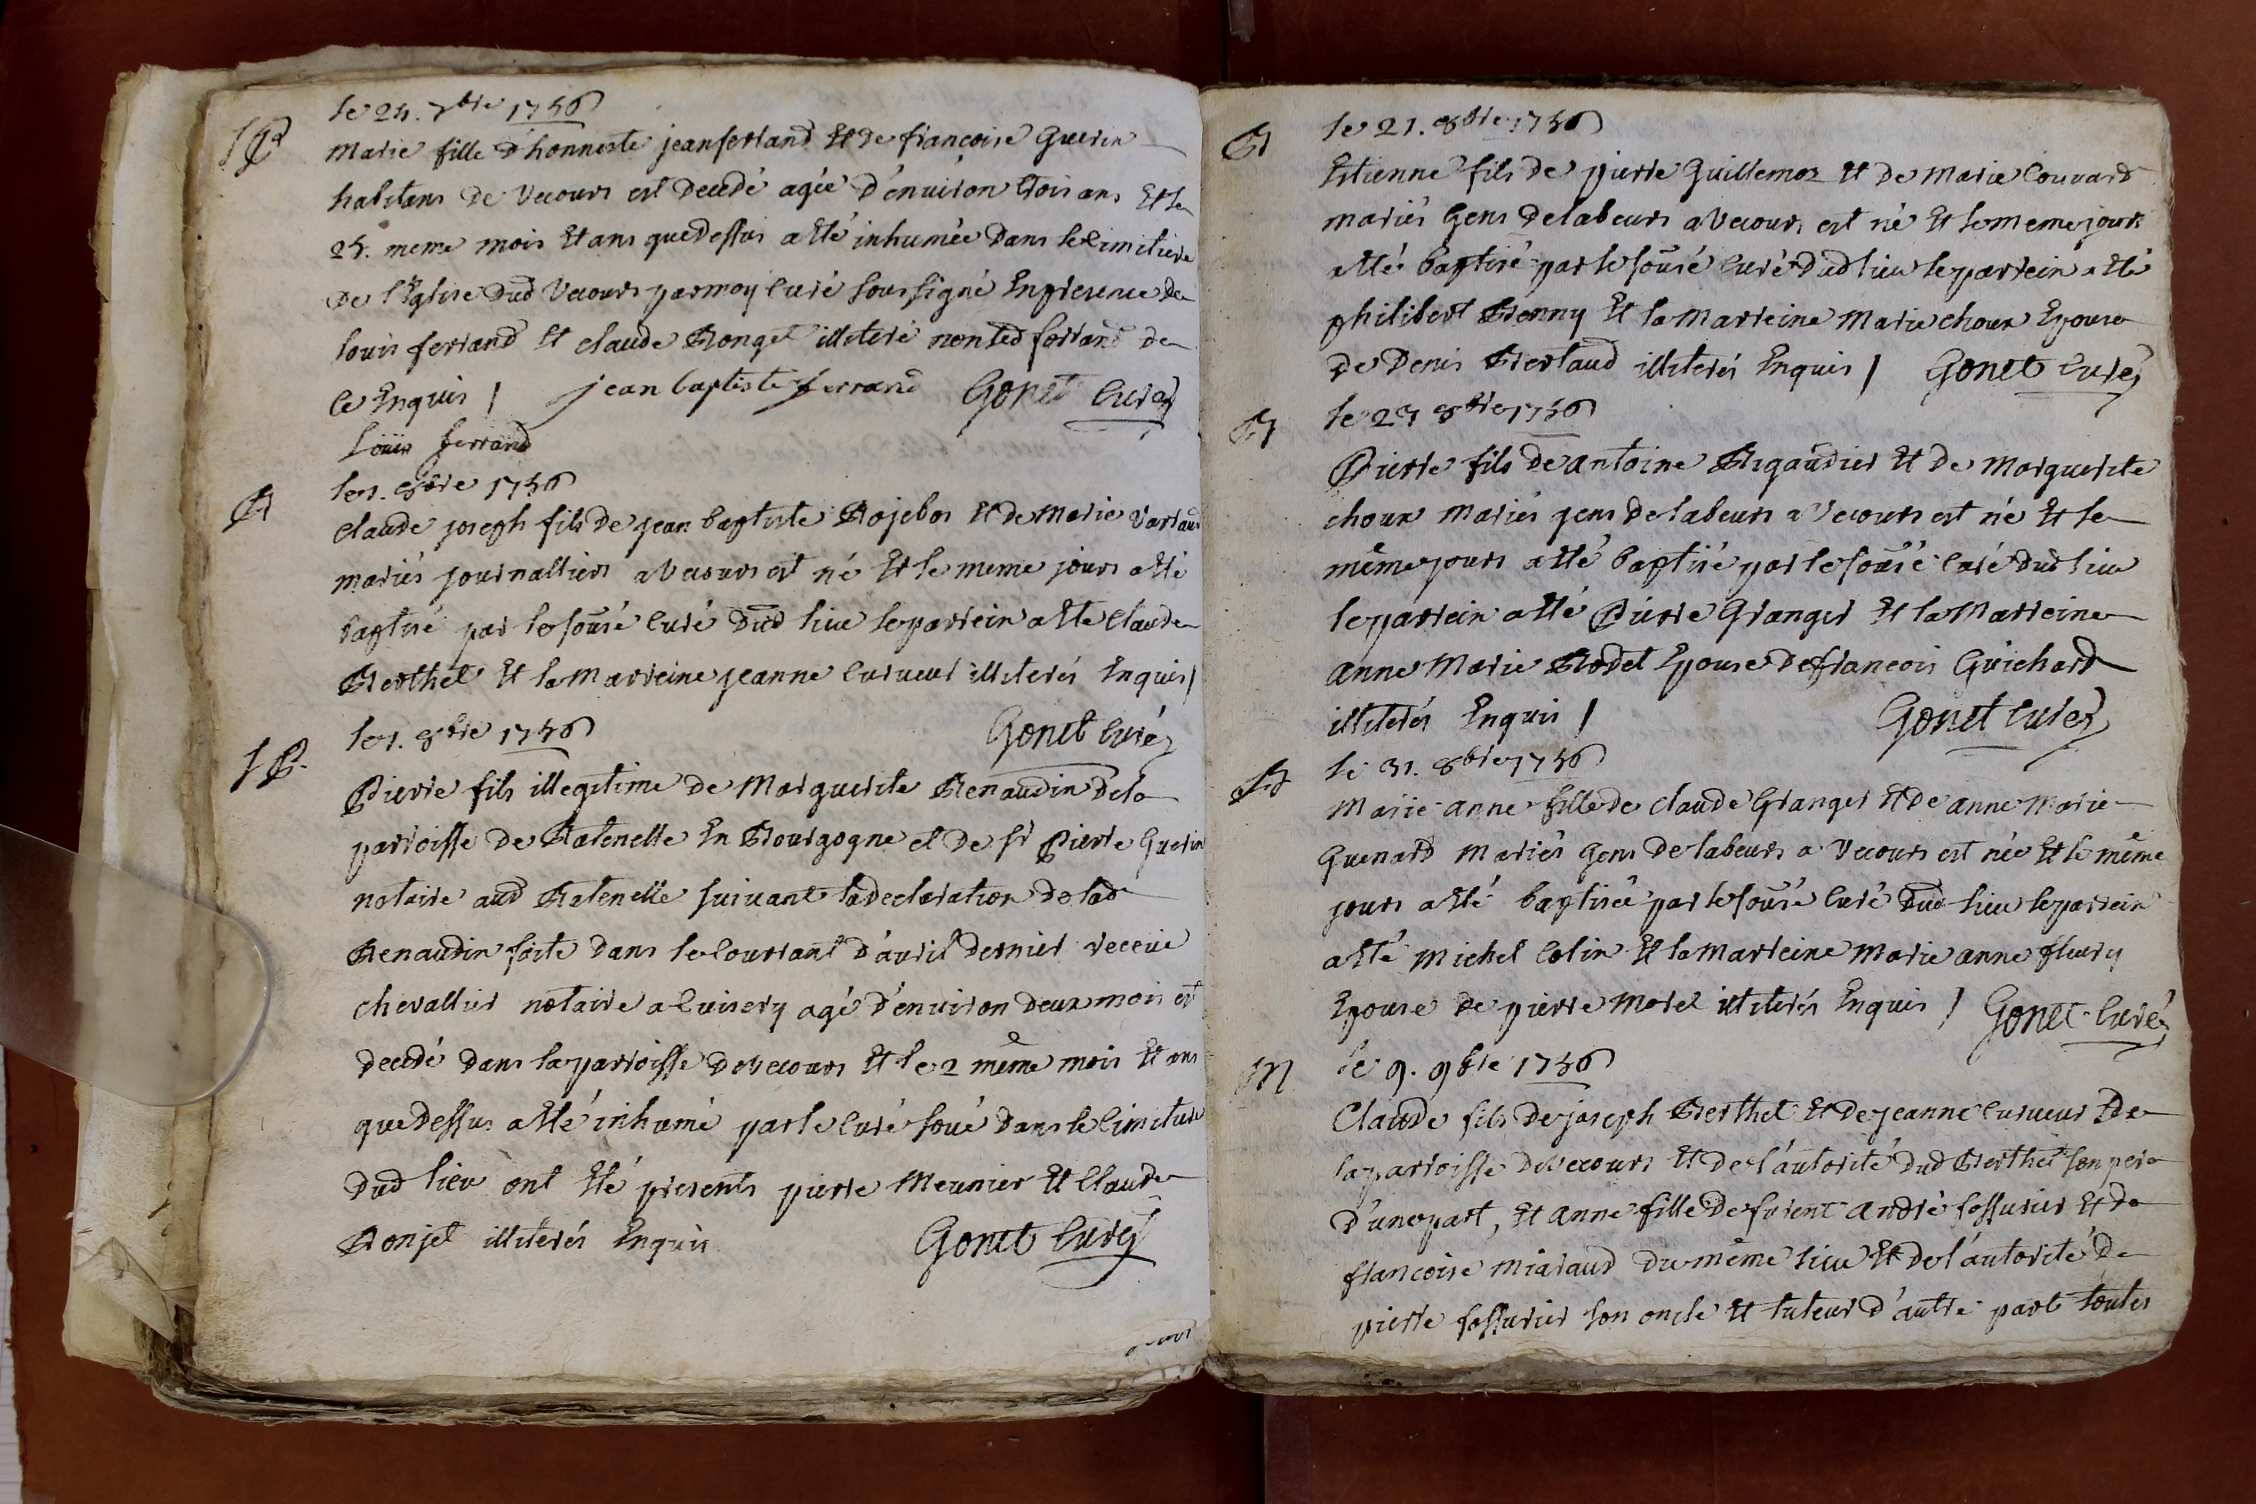 le 24. 7bre 1756
Marie fille d'honneste jean ferrand Et de francoise Guerin
habitans de Vecours est decedé agée d'énuiron trois ans Et le
25. meme mois Et ans que dessus a Eté inhumée dans le Cimitiere
de l'Eglise dud Vecours par moy Curé soussigné En presence de
louis ferrand Et claude Bonget illiteré non led ferrand de
ce Enquis / jean baptiste ferrand Gonet Curé
Loüis ferrand
B
le 1. 8bre 1756
Claude joseph fils de jean baptiste Bojebos Et de Marie Varlaud
mariés journalliers a Vecours est né Et le meme jours a Eté
baptisé par le sousé Curé dud lieu le parrein a Eté Claude
Berthet Et la Marreine jeanne Curueur illiterés Enquis /
Gonet Curé
le 1. 8bre 1756
Pierre fils illegitime de Marguerite Renaudin de la
parroisse de Ratenelle En Bourgogne et de sr Pierre Guerin
notaire aud Ratenelle suivant la declaration de lad
Renaudin faite dans le Courrant d'auril dernier receüe
chevallier notaire a Cuisery agé d'énuiron deux mois est
decedé dans la parroisse de Vecours Et le 2 même mois Et ans
que dessus a Eté inhumé par le Curé soué dans le Cimitiere
dud lieu ont Eté presents pierre Meunier Et Claude
Bonjet illiterés Enquis Gonet Curé
B
le 21. 8bre 1756
Estienne fils de pierre Guillemoz Et de Marie Couvard
mariés Gens de labeurs a Vecours est né Et le meme jours
a Eté baptisé par le sousé Curé dud lieu le parrein a Eté
philibert Bonny Et la Marreine Marie choux Epouse
de Denis Bertaud illiterés Enquis / Gonet Curé
B
le 23 8bre 1756
Pierre fils de antoine Rigaudier Et de Marguerite
choux Mariés gens de labeurs a Vecours est né Et le
même jours a Eté baptisé par le sousé Curé dud lieu
le parrein a Eté Pierre Granger Et la Marreine
anne Marie Rodet Epouse de francois Guichard
illiterés Enquis / Gonet Curé
B
le 31. 8bre 1756
Marie anne fille de Claude Granger Et de anne Marie
Guenard Mariés Gens de labeurs a Vecours est née Et le même
jours a Eté baptisée par le sousé Curé dud lieu le parrein
a Eté Michel Colin Et la Marreine Marie anne fleury
Epouse de pierre Morel illiterés Enquis / Gonet Curé
M
le 9. 9bre 1756
Claude fils de joseph Berthet Et de jeanne Curueur de
la parroisse de Vecours Et de l'áutorité dud Berthet son pere
d'une part, Et anne fille de furent andré fossurier Et de
francoise miaraud du même lieu Et de l'áutorité de
pierre fossurier son oncle Et tuteur d'autre part toutes